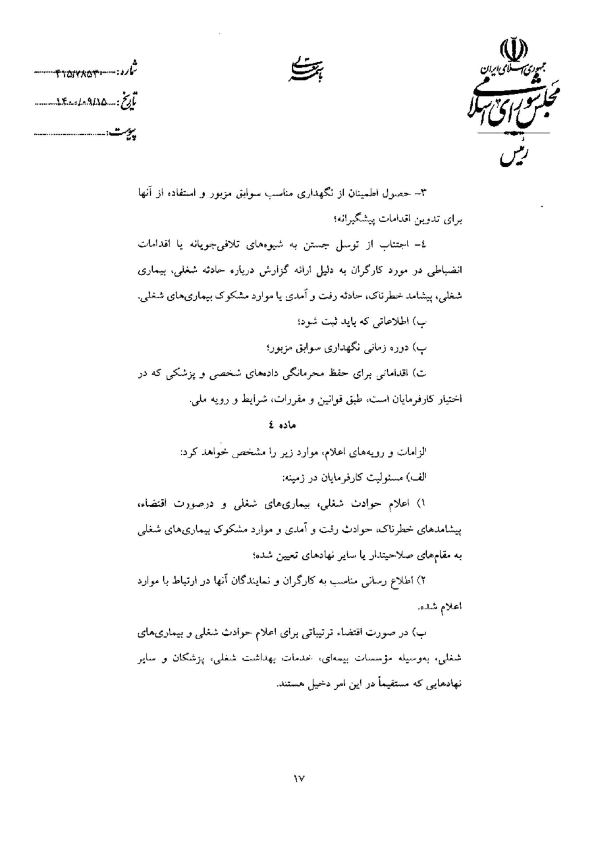 جمهوری اسلامی ایران
مجلس شورای اسلامی
رئیس
باسمه تعالی
شماره: ۴۱۵/۷۸۵۳۰
تاریخ: ۱۴۰۰/۰۹/۱۵
پیوست:
۳- حصول اطمینان از نگهداری مناسب سوابق مزبور و استفاده از آنها
برای تدوین اقدامات پیشگیرانه؛
۴- اجتناب از توسل جستن به شیوه‌های تلافی‌جویانه یا اقدامات
انضباطی در مورد کارگران به دلیل ارائه گزارش درباره حادثه شغلی، بیماری
شغلی، پیشامد خطرناک، حادثه رفت و آمدی یا موارد مشکوک بیماری‌های شغلی.
ب) اطلاعاتی که باید ثبت شود؛
پ) دوره زمانی نگهداری سوابق مزبور؛
ت) اقداماتی برای حفظ محرمانگی داده‌های شخصی و پزشکی که در
اختیار کارفرمایان است، طبق قوانین و مقررات، شرایط و رویه ملی.
ماده ۴
الزامات و رویه‌های اعلام، موارد زیر را مشخص خواهد کرد:
الف) مسئولیت کارفرمایان در زمینه:
۱) اعلام حوادث شغلی، بیماری‌های شغلی و درصورت اقتضاء،
پیشامدهای خطرناک، حوادث رفت و آمدی و موارد مشکوک بیماری‌های شغلی
به مقام‌های صلاحیتدار یا سایر نهادهای تعیین شده؛
۲) اطلاع رسانی مناسب به کارگران و نمایندگان آنها در ارتباط با موارد
اعلام شده.
ب) در صورت اقتضاء ترتیباتی برای اعلام حوادث شغلی و بیماری‌های
شغلی، به‌وسیله مؤسسات بیمه‌ای، خدمات بهداشت شغلی، پزشکان و سایر
نهادهایی که مستقیماً در این امر دخیل هستند.
۱۷